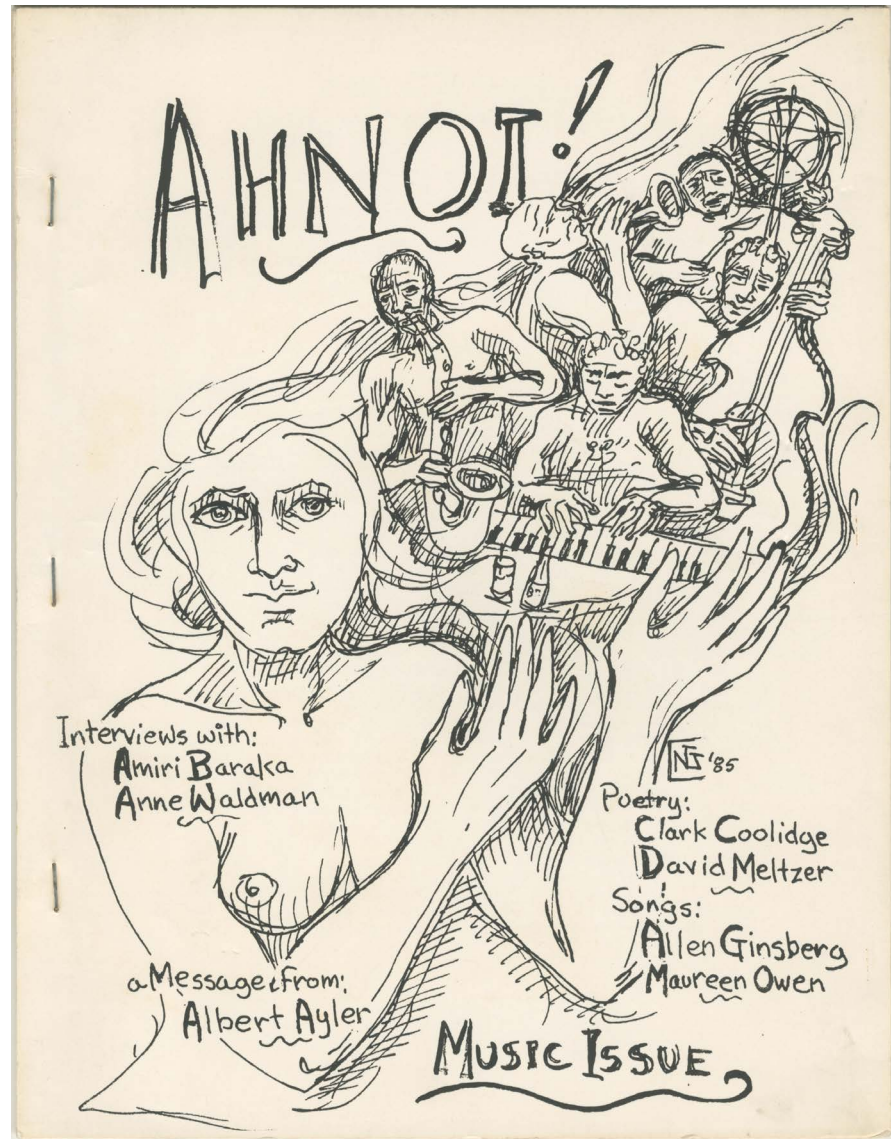 AHNOI!
Interviews with:
Amiri Baraka
Anne Waldman
'85
Poetry:
Clark Coolidge
David Meltzer
Songs:
Allen Ginsberg
Maureen Owen
a Message from:
Albert Ayler
MUSIC ISSUE